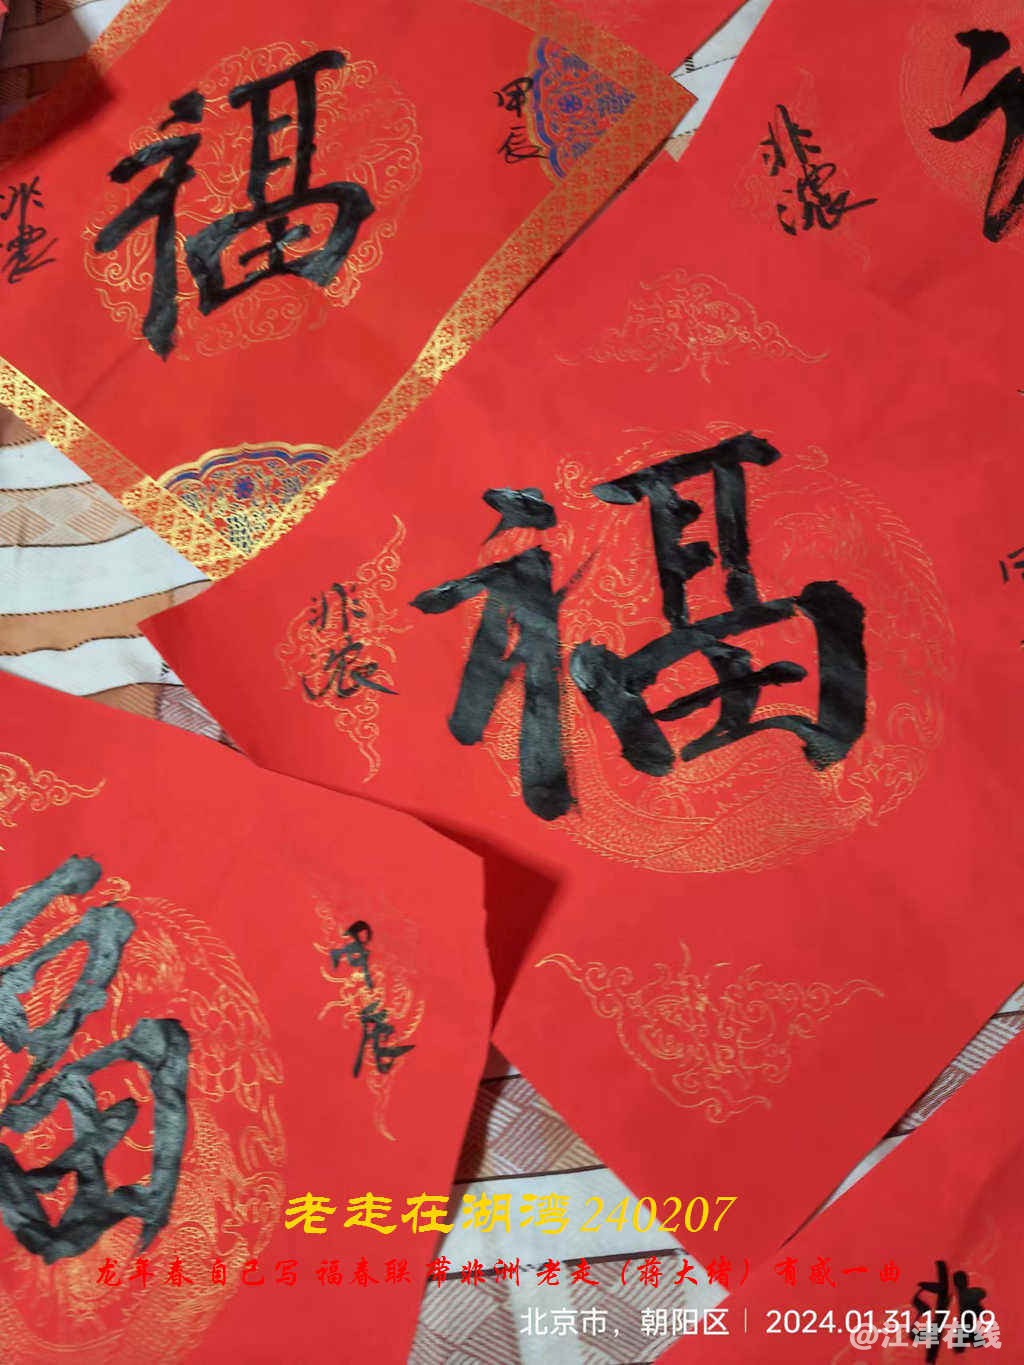 福
甲辰
非濃
非濃
福
非浓
甲辰
老走在湖湾240207
龙年春自己写福春联带非洲 老走（蒋大绪）有感一曲
北京市，朝阳区 | 2024.01.31 17:09
@江津在线
非